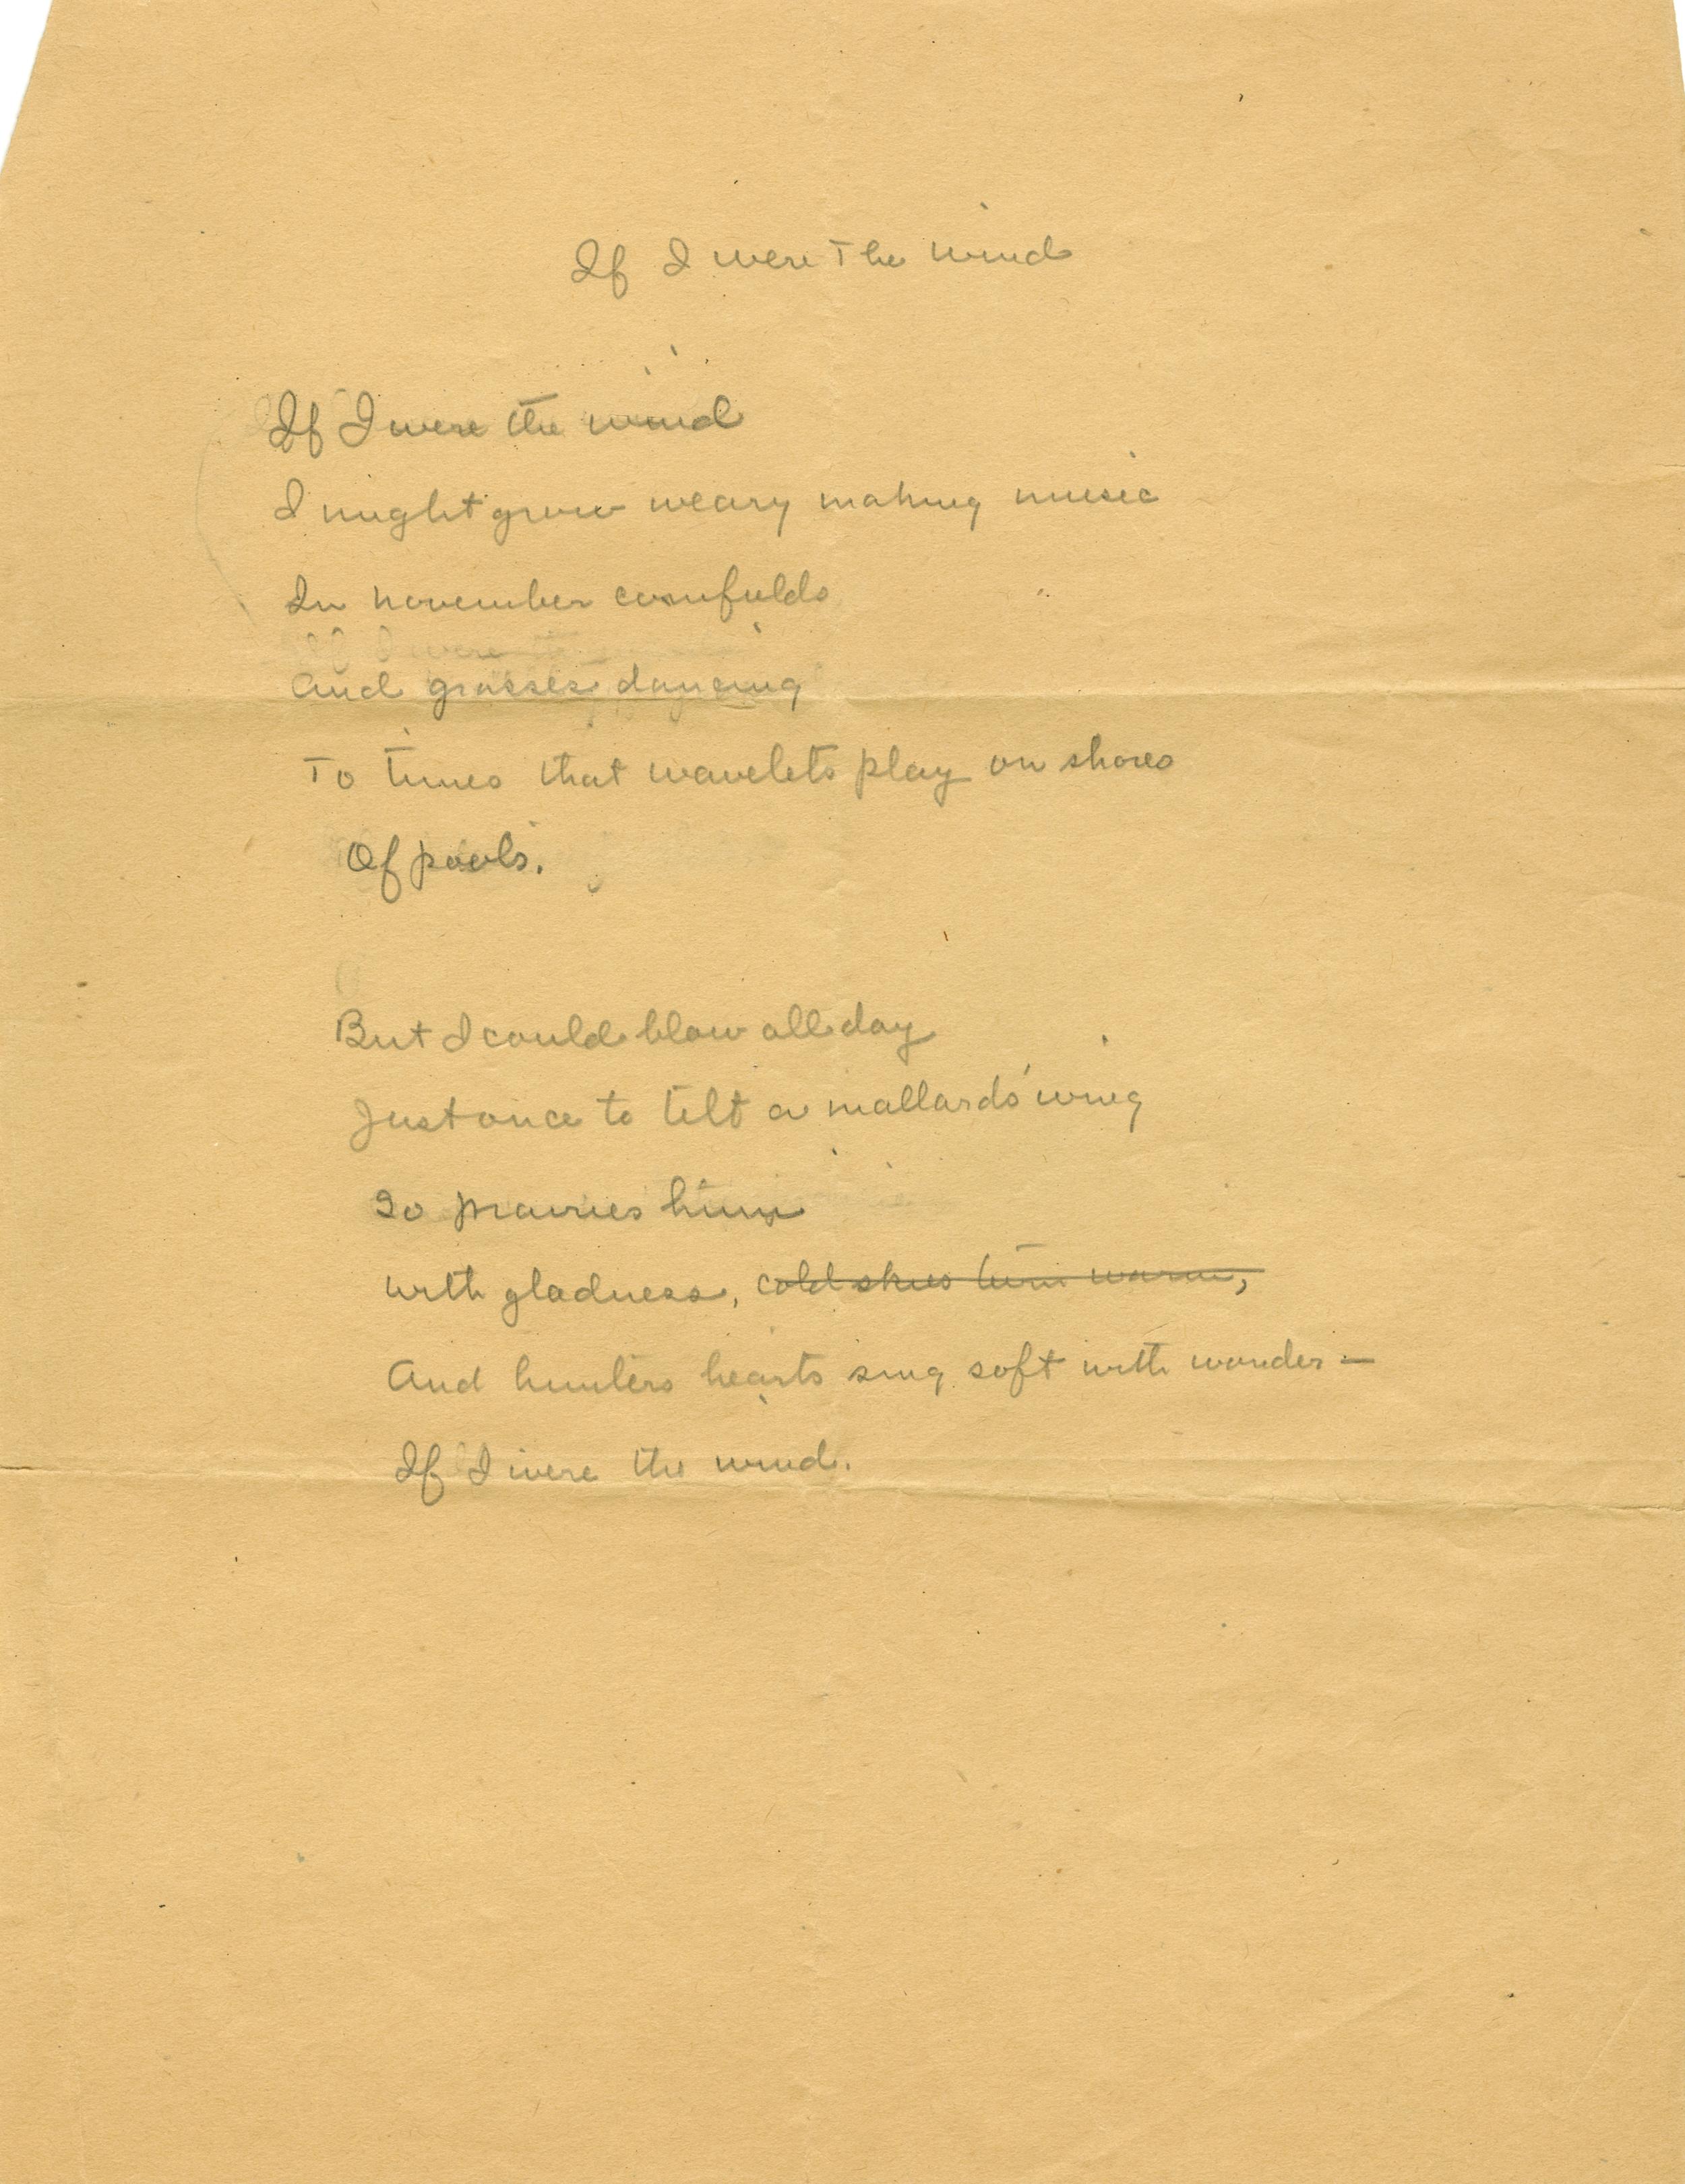 If I were The wind
If I were the wind
I might grow weary making music
In november cornfields
And grasses dancing
To tunes that wavelets play on shores
Of pools.
But I could blow all day
Just once to tilt a mallards' wing
So prairies hum
with gladness, cold skies turn warm,
And hunters hearts sing soft with wonder —
If I were the wind.